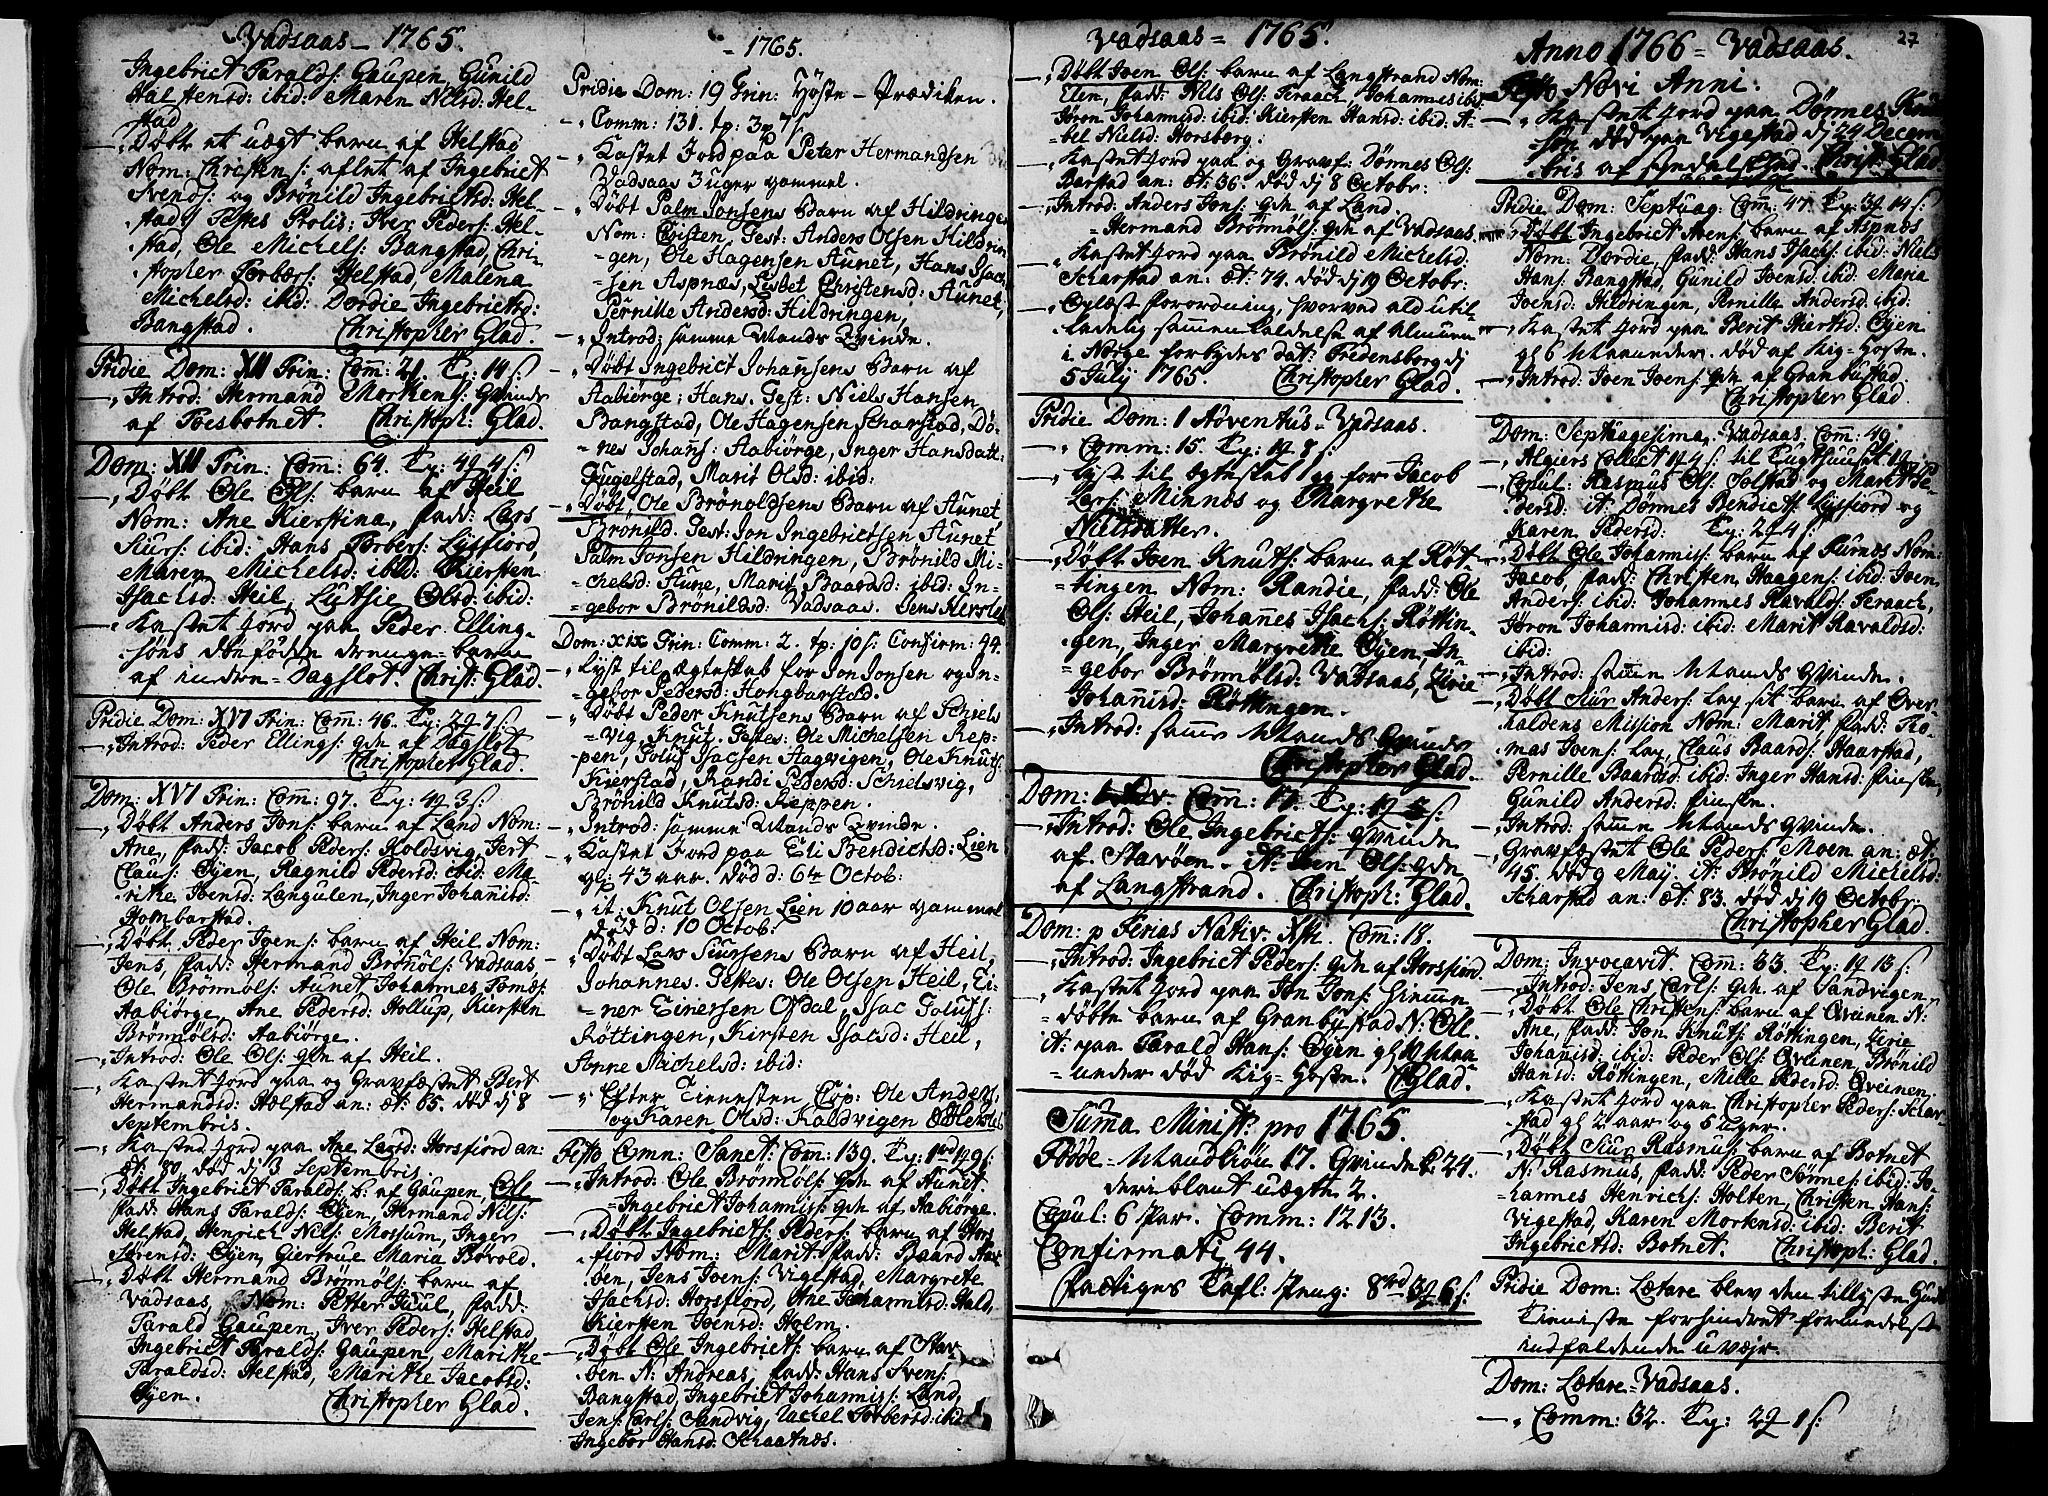 Vadsaas - 1765.
Ingebrict Taralds: Gaupen, Gunild
Halstensd: ibid: Maren Nilsd: Hel-
stad
Døbt et uægt barn af Helstad
Nom: Christen s: aflet af Ingebrict
Svends: og Brønild Ingebrictsd: Hel-
stad, Testes Prolis; Iver Peders: Hel-
stad, Ole Michels: Bangstad, Chri-
stopher Torbers: Helstad, Malena
Michelsd: ibid: Dordie Ingebrictsd:
Bangstad. Christopher Glad.
Pridie Dom: XII Trin: Com: 21. Ty: 14 s:
Introd: Hermand Morkens: Qvinde
af Foesbotnet. Christoph: Glad.
Dom: XII Trin: Com: 64. Ty: 4 s:
Døbt Ole Ols: barn af Heil
Nom: Ane Kierstina, fadd: Lars
Siurs: ibid: Hans Torbers: Lysfiord,
Maren Michelsd: ibid: Kiersten
Isachsd: Heil, Lutsie Olsd: ibid:
Kastet Jord paa Peder Elling-
søns dødfødde drenge-barn
af indre-Dagslot. Christ: Glad.
Pridie Dom: XVI Trin: Com: 46. Ty: 7 s:
Introd: Peder Ellings: qde af Dagslot
Christopher Glad.
Dom: XVI Trin: Com: 97. Ty: 3 s:
Døbt Anders Jons: barn af Land Nom:
Ane, fadd: Jacob Peders: Koldsvig, Gert
Claus: Øyen, Ragnild Pedersd: ibid: Ma-
ritke Joensd: Langulen, Inger Johannisd:
Hombarstad.
Døbt Peder Joens: barn af Heil Nom:
Jens, fadd: Hermand Brønøls: Vadsaas,
Ole Brønnøls: Aunet Johannes Tomæs:
Aabiørge, Ane Pedersd: Hollup, Kiersten
Brønnølsd: Aabiørge.
Introd: Ole Ols: qde af Heil.
Kastet Jord paa og Gravfæstet Beret
Hermandsd: Hælstad an: æt: 65. død dj 8
Septembris.
Kasted Jord paa Ane Larsd: Horsfiord an:
æt: 80, død dj 3 Septembris.
Døbt Ingebrict Taralds: b: af Gaupen, Ole
fadd: Hans Taralds: Øyen, Hermand Nils:
Helstad, Henrich Nils: Mossum, Inger
Sørensd: Øyen, Giertrue Maria Bovold.
Døbt Hermand Brønnøls: barn af
Vadsaas, Nom: Petter Juul, fadd:
Tarald Gaupen, Iver Peders: Helstad,
Ingebrict Taralds: Gaupen, Maritke
Taraldsd: Helstad, Maritke Jacobsd:
Øyen. Christopher Glad.
- 1765.
Pridie Dom: 19 Trin: Høste-Prædiken.
Comm: 131. tp: 7 s:
Kastet Jord paa Peter Hermandsen
Vadsaas 3 uger gammel.
Døbt Palm Jonsens Barn af Hildringen
Nom: Cristen, Test: Anders Olsen Hildrin-
gen, Ole Hagensen Aunet, Hans Isach-
sen Aspnæs, Lisbet Christensd: Aunet,
Pernille Andersd: Hildringen,
Introd: samme Mands Qvinde.
Døbt Ingebrict Johansens Barn af
Aabiørge; Hans. Test: Niels Hansen
Bangstad, Ole Hagensen Scharstad, Dø-
nes Johans: Aabiørge, Inger Hansdatt:
Gugelstad, Marit Olsd: ibid:
Døbt Ole Brønoldsens Barn af Aunet
Brønild. Test: Jon Ingebrictsen Aunet
Palm Jonsen Hildringen, Brønild Mi-
chelsd: Aune, Marit Baardsd: ibid: In-
gebor Brønildsd: Vadsaas. Jens Hersleb
Dom: XIX Trin: Comm: 2. tp: 10 s: Confirm: 44.
Lyst til ægteskab for Jon Jonsen og In-
gebor Pedersd: Hongbarstad.
Døbt Peder Knutsens Barn af Schiels-
vig, Knut. Testes: Ole Michelsen Rep-
pen, Joluf Isachsen Aagvigen, Ole Knuts:
Kierstad, Randi Pedersd: Schielsvig,
Brønild Knutsd: Reppen.
Introd: samme Mands Qvinde.
Kastet Jord paa Eli Bendichsd: Lien
gl: 43 aar. død d: 6te Octob:
it: Knut Olsen Lien 10 aar gammel
død d: 10 Octob:
Døbt Lars Siursens Barn af Heil,
Johannes. Testes: Ole Olsen Heil, Ei-
ner Einersen Opdal, Isac Joluss:
Röttingen, Kirsten Isaksd: Heil,
Anne Michelsd: ibid:
Efter Tienesten, Cop: Ole Anders:
og Karen Olsd: Kaldvigen Hersleb
Festo Omn: Sanct: Com: 139. Ty: 1rd 9 s:
Introd: Ole Brønnøls: qde af Aunet.
Ingebrict Johannis: qde af Aabiørge.
Døbt Ingebricts: Peders: barn af Hors-
fiord Nom: Marit fadd: Baard Nax-
øen, Jens Joens: Vigestad, Margrete
Isachsd: Horsfiord, Ane Johannisd: Hald,
Kiersten Joensd: Holm.
Døbt Ole Ingebricts: barn af Stav-
øen N: Andreas, fadd: Hans Svens:
Bangstad, Ingebrict Johannis: Land,
Jens Carls: Sandvig, Rachel Torbersd: ibid:
Ingebor Hansd: Schaatnæs.
Vadsaas = 1765.
Døbt Joen Ols: barn af Langstrand Nom:
Elen, fadd: Nils Ols: Teraach, Johannes ibid:
Jøron Johannisd: ibid: Kiersten Hansd: ibid: A-
bel Nielsd: Horsberg.
Kastet Jord paa og Gravf: Dønnes Ols:
Barstad an: æt: 36. død dj 8 Octobr:
Introd: Anders Jons: qde af Land.
Hermand Brønnøls: qde af Vadsaas.
Kastet Jord paa Brønild Michelsd:
Scharstad an: æt: 74. død dj 19 Octobr:
Oplæst forordning, hvorved ald util-
ladelig sammen kaldelse af Almuen
i Norge forbydes dat: Fredensborg dj
5 July 1765. Christopher Glad.
Pridie Dom: 1 Adventus-Vadsaas.
Comm: 15. Ty: 8 s:
Lyst til ægteskab 1 g for Jacob
Lars: Minnes og Margrethe
Nielsdatter.
Døbt Joen Knuts: barn af Røt-
tingen Nom: Randie, fadd: Ole
Ols: Heil, Johanes Isachs: Røttin-
gen, Inger Margrethe Øyen, In-
gebor Brønnølsd: Vadsaas, Zirie
Johanisd: Røttingen.
Introd: same Mands Qvinde
Christopher Glad.
Dom: 1 Adv: Com: 17. Ty: s:
Introd: Ole Ingebricts: Qvinde
af Stavøen. it: Joen Ols: qde
af Langstrand. Christoph: Glad.
Dom: p Ferias Nativ: Xti. Com: 18.
Introd: Ingebrict Peders: qde af Horsfiord.
Kastet Jord paa Jon Jons: hiemme
døbte barn af Granbystad N: Ole.
it: paa Tarald Hans: Øyen gl 10 Maa-
neder død Kig-Hoste. CGlad.
Summa Minist: pro 1765.
Fødde-Mandkiøn 17. Qvindek: 24.
deriblant uægte 2.
Copul: 6 Par. Comm: 1213.
Confirmati 44.
Fattiges Tafl: Peng: 8rd 6 s:
27
Anno 1766 = Vadsaas.
Festo Novi Anni.
Kastet Jord paa Dønnes Knud-
søn død paa Vigestad dj 24 Decem-
bris Christ: Glad.
Pridie Dom: Septuag: Com: 47. Ty: 14 s:
Døbt Ingebrict Svens: barn af Aspnæs
Nom: Dordie, fadd: Hans Isachs: ibid: Niels
Hans: Bangstad, Gunild Joensd: ibid: Maria
Joensd: Hildringen, Pernille Andersd: ibid:
Kastet Jord paa Berit Kiertsd: Øyen
gl 6 Maaneder. død af Kig-Hoste.
Introd: Joen Joens: qde af Granbustad.
Christopher Glad.
Dom: Septuagesima,-Vadsaas Com: 49
Algiers Collect 4 s: til Tugthuuset
Copul: Rasmus Ols: Solstad og Marit Pe-
dersd: it: Dønnes Bendict: Lysfiord og
Karen Pedersd: Ty: 4 s:
Døbt Ole Johannis: barn af Furnæs Nom:
Jacob, fadd: Christen Haagens: ibid: Joen
Anders: ibid: Johannes Ravalds: Teraach,
Jøron Johannisd: ibid: Marit Ravaldsd:
ibid:
Introd: samme Mands Qvinde.
Døbt Siur Anders: Lap sit barn af Over-
haldens Mission Nom: Marit fadd: To-
mas Joens: Lap, Claus Baards: Haarstad,
Pernille Baardsd: ibid: Inger Hansd: finske,
Gunild Andersd: finske.
Introd: samme Mands Qvinde.
Gravfæstet Ole Peders: Moen an: æt:
45. død 9 Maij. it: Brønild Michelsd:
Scharstad an: æt: 83. død dj 19 Octobr:
Christopher Glad.
Dom: Invocavit Com: 33. Ty: 13 s:
Introd: Jens Carls: qde af Sandvigen
Døbt Ole Christens: barn af Qveinen N:
Ane, fadd: Jon Knuts: Røttingen, Zirie
Johanisd: ibid: Peder Ols: Qveinen, Brønild
Hansd: Røttingen, Mille Pedersd: Qveinen.
Kastet Jord paa Christopher Peders: Schar-
stad gl 2 aar og 5 uger.
Døbt Siur Rasmus: barn af Botnet
N: Rasmus, fadd: Peder Tønnes: ibid: Jo-
hannes Henrichs: Holten, Christen Hans:
Vigestad, Karen Mortensd: ibid: Berit
Ingebrictsd: Botnet. Christoph: Glad.
Pridie Dom: Lætare blev den tillyste Guds
Tienneste forhindret formedelst
indfaldende uvejr.
Dom: Lætare=Vadsaas.
Comm: 32. Ty: 1 s: